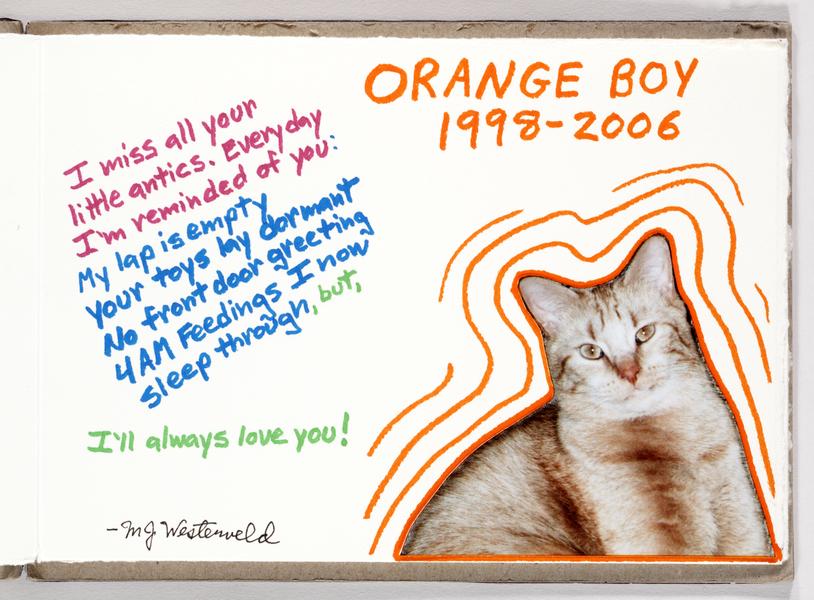 ORANGE BOY
1998-2006
I miss all your
little antics. Everyday
I'm reminded of you:
My lap is empty
your toys lay dormant
No front door greeting
4 AM Feedings I now
sleep through, but,
I'll always love you!
-MJ Westerveld